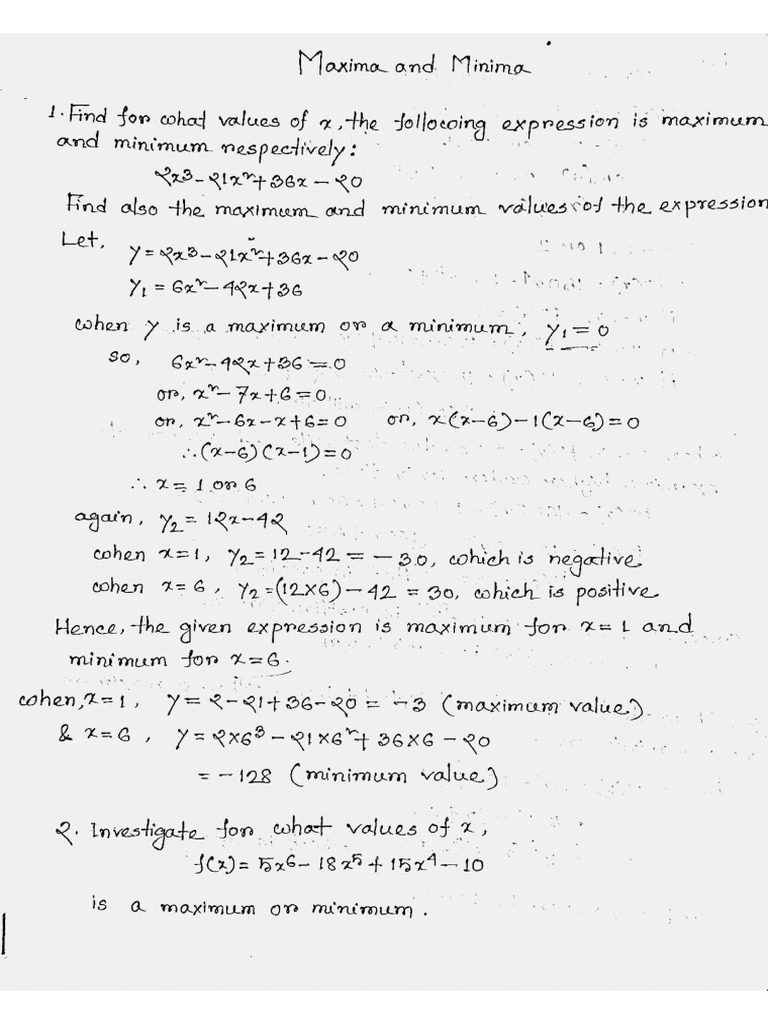 Maxima and Minima
1. Find for what values of x, the following expression is maximum
and minimum respectively:
2x³ – 21x² + 36x – 20
Find also the maximum and minimum values of the expression
Let,
y = 2x³ – 21x² + 36x – 20
y₁ = 6x² – 42x + 36
when y is a maximum or a minimum, y₁ = 0
so, 6x² – 42x + 36 = 0
or, x² – 7x + 6 = 0
or, x² – 6x – x + 6 = 0 or, x(x–6) – 1(x–6) = 0
∴ (x–6)(x–1) = 0
∴ x = 1 or 6
again, y₂ = 12x – 42
when x = 1, y₂ = 12 – 42 = – 30, which is negative
when x = 6, y₂ = (12×6) – 42 = 30, which is positive
Hence, the given expression is maximum for x = 1 and
minimum for x = 6.
when, x = 1, y = 2 – 21 + 36 – 20 = –3 (maximum value)
& x = 6, y = 2×6³ – 21×6² + 36×6 – 20
= –128 (minimum value)
2. Investigate for what values of x,
f(x) = 5x⁶ – 18x⁵ + 15x⁴ – 10
is a maximum or minimum.